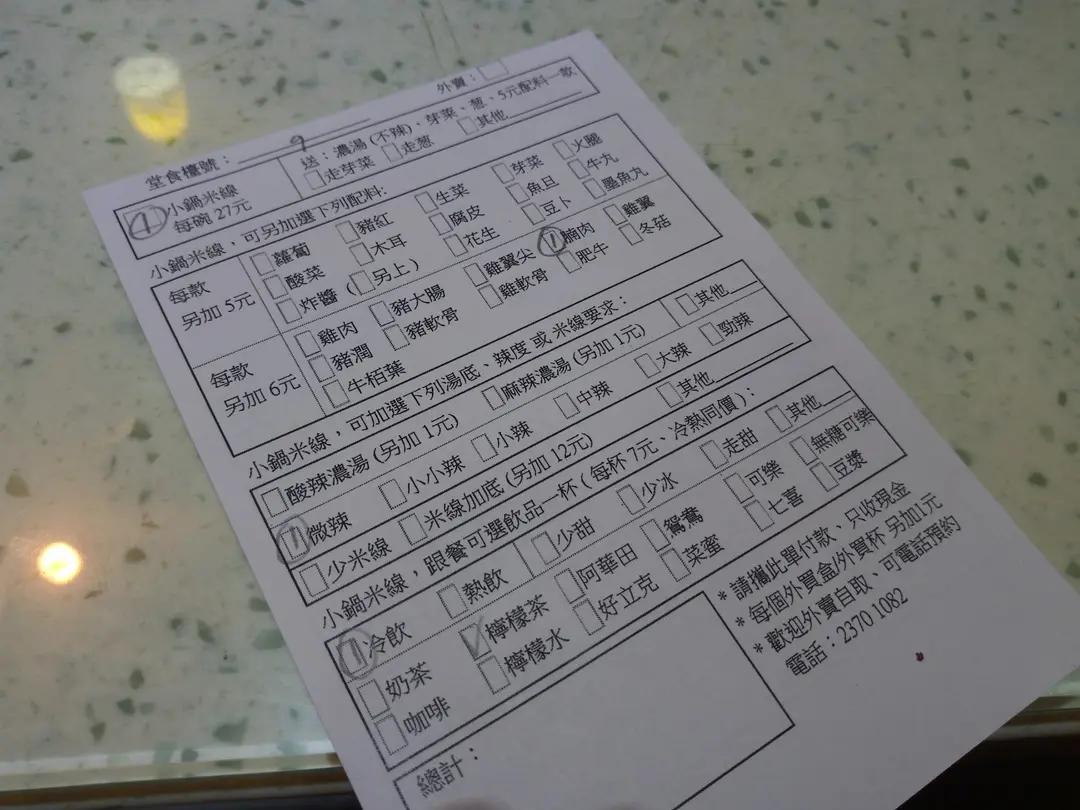 外賣：
堂食檯號： 9
送：濃湯 (不辣)、芽菜、葱、5元配料一款
走芽菜 走葱 其他
1 小鍋米線
每碗 27元
小鍋米線，可另加選下列配料:
每款
另加 5元
蘿蔔 豬紅 生菜 芽菜 火腿
酸菜 木耳 腐皮 魚旦 牛丸
炸醬 ( 另上 ) 花生 豆卜 墨魚丸
每款
另加 6元
雞肉 豬大腸 雞翼尖 1 腩肉 雞翼
豬潤 豬軟骨 雞軟骨 肥牛 冬菇
牛栢葉
小鍋米線，可加選下列湯底、辣度 或 米線要求：
酸辣濃湯 (另加 1元) 麻辣濃湯 (另加 1元) 其他
1 微辣 小小辣 小辣 中辣 大辣 勁辣
少米線 米線加底 (另加 12元) 其他
小鍋米線，跟餐可選飲品一杯 ( 每杯 7元、冷熱同價 )：
1 冷飲 熱飲 少甜 少冰 走甜 其他
奶茶 ✓ 檸檬茶 阿華田 鴛鴦 可樂 無糖可樂
咖啡 檸檬水 好立克 菜蜜 七喜 豆漿
總計：
* 請攜此單付款、只收現金
* 每個外買盒/外買杯 另加1元
* 歡迎外賣自取、可電話預約
電話：2370 1082